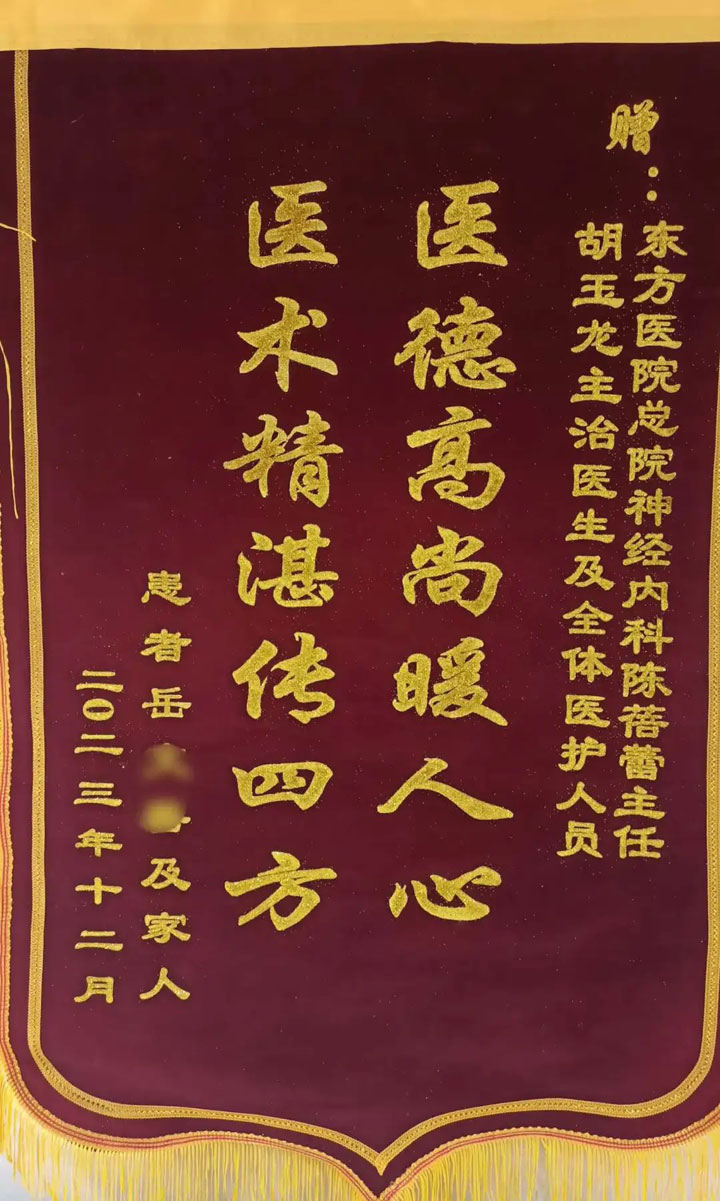 赠：
东方医院总院神经内科陈蓓蕾主任
胡玉龙主治医生及全体医护人员
医德高尚暖人心
医术精湛传四方
患者岳 及家人
二〇二三年十二月